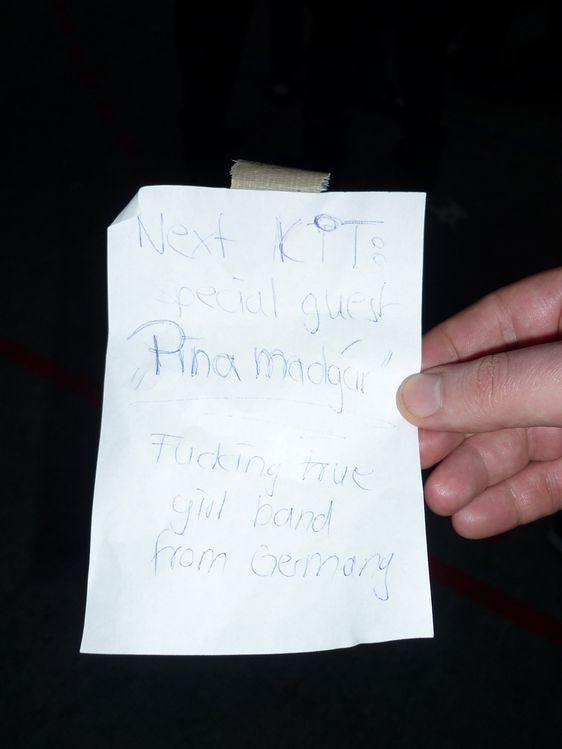 Next KIT:
special guest
„Pina madgár"
Fucking true
girl band
from Germany